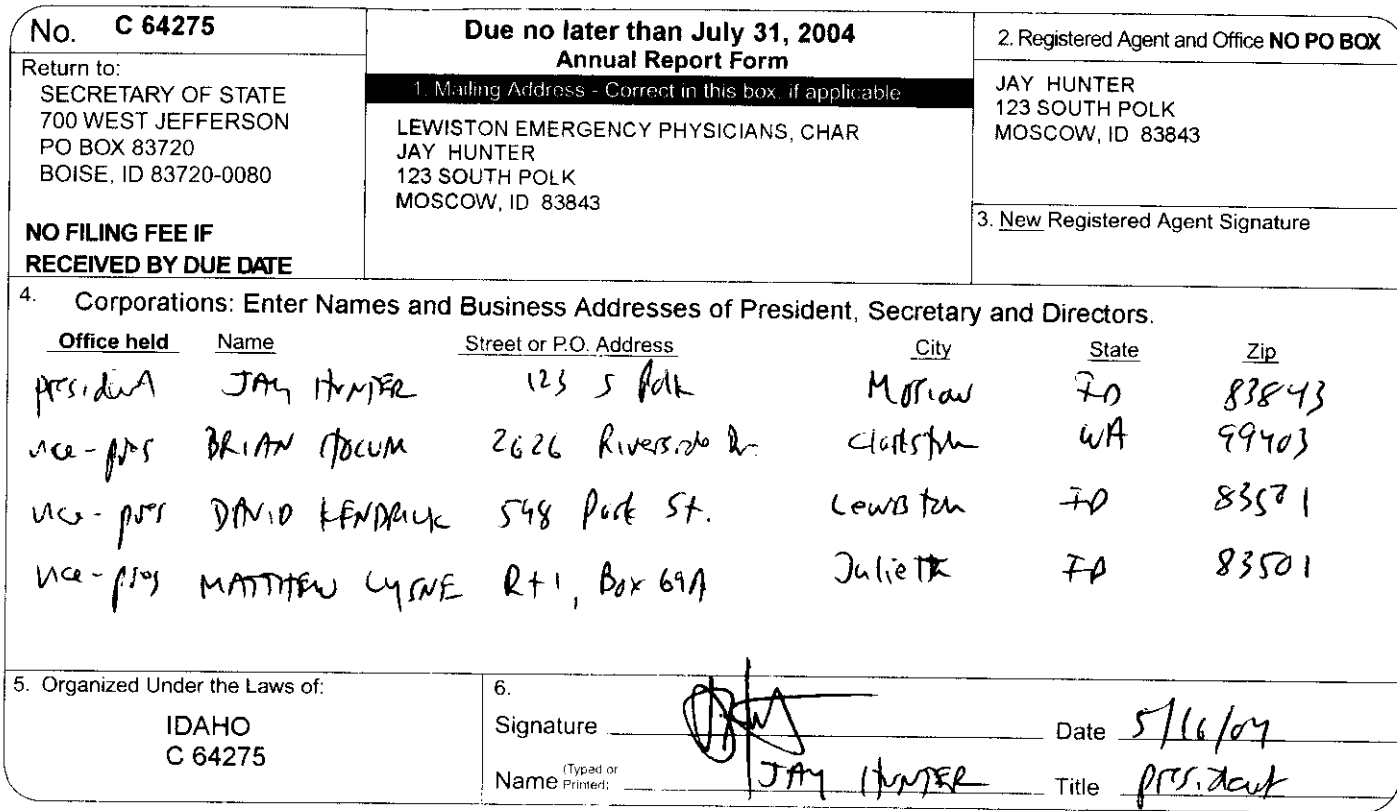 No. C 64275
Return to:
SECRETARY OF STATE
700 WEST JEFFERSON
PO BOX 83720
BOISE, ID 83720-0080
NO FILING FEE IF
RECEIVED BY DUE DATE
Due no later than July 31, 2004
Annual Report Form
1. Mailing Address - Correct in this box, if applicable
LEWISTON EMERGENCY PHYSICIANS, CHAR
JAY HUNTER
123 SOUTH POLK
MOSCOW, ID 83843
2. Registered Agent and Office NO PO BOX
JAY HUNTER
123 SOUTH POLK
MOSCOW, ID 83843
3. New Registered Agent Signature
4. Corporations: Enter Names and Business Addresses of President, Secretary and Directors.
Office held Name Street or P.O. Address City State Zip
president JAY HUNTER 123 S Polk Moscow ID 83843
vice-pres BRIAN 2626 Riverside Dr. Clarkston WA 99403
vice-pres DAVID KENDRICK 548 Park St. Lewiston ID 83501
vice-pres MATTHEW LYSNE Rt 1, Box 69A Julietta ID 83501
5. Organized Under the Laws of:
IDAHO
C 64275
6.
Signature Date 5/16/04
Name (Typed or Printed) JAY HUNTER Title president